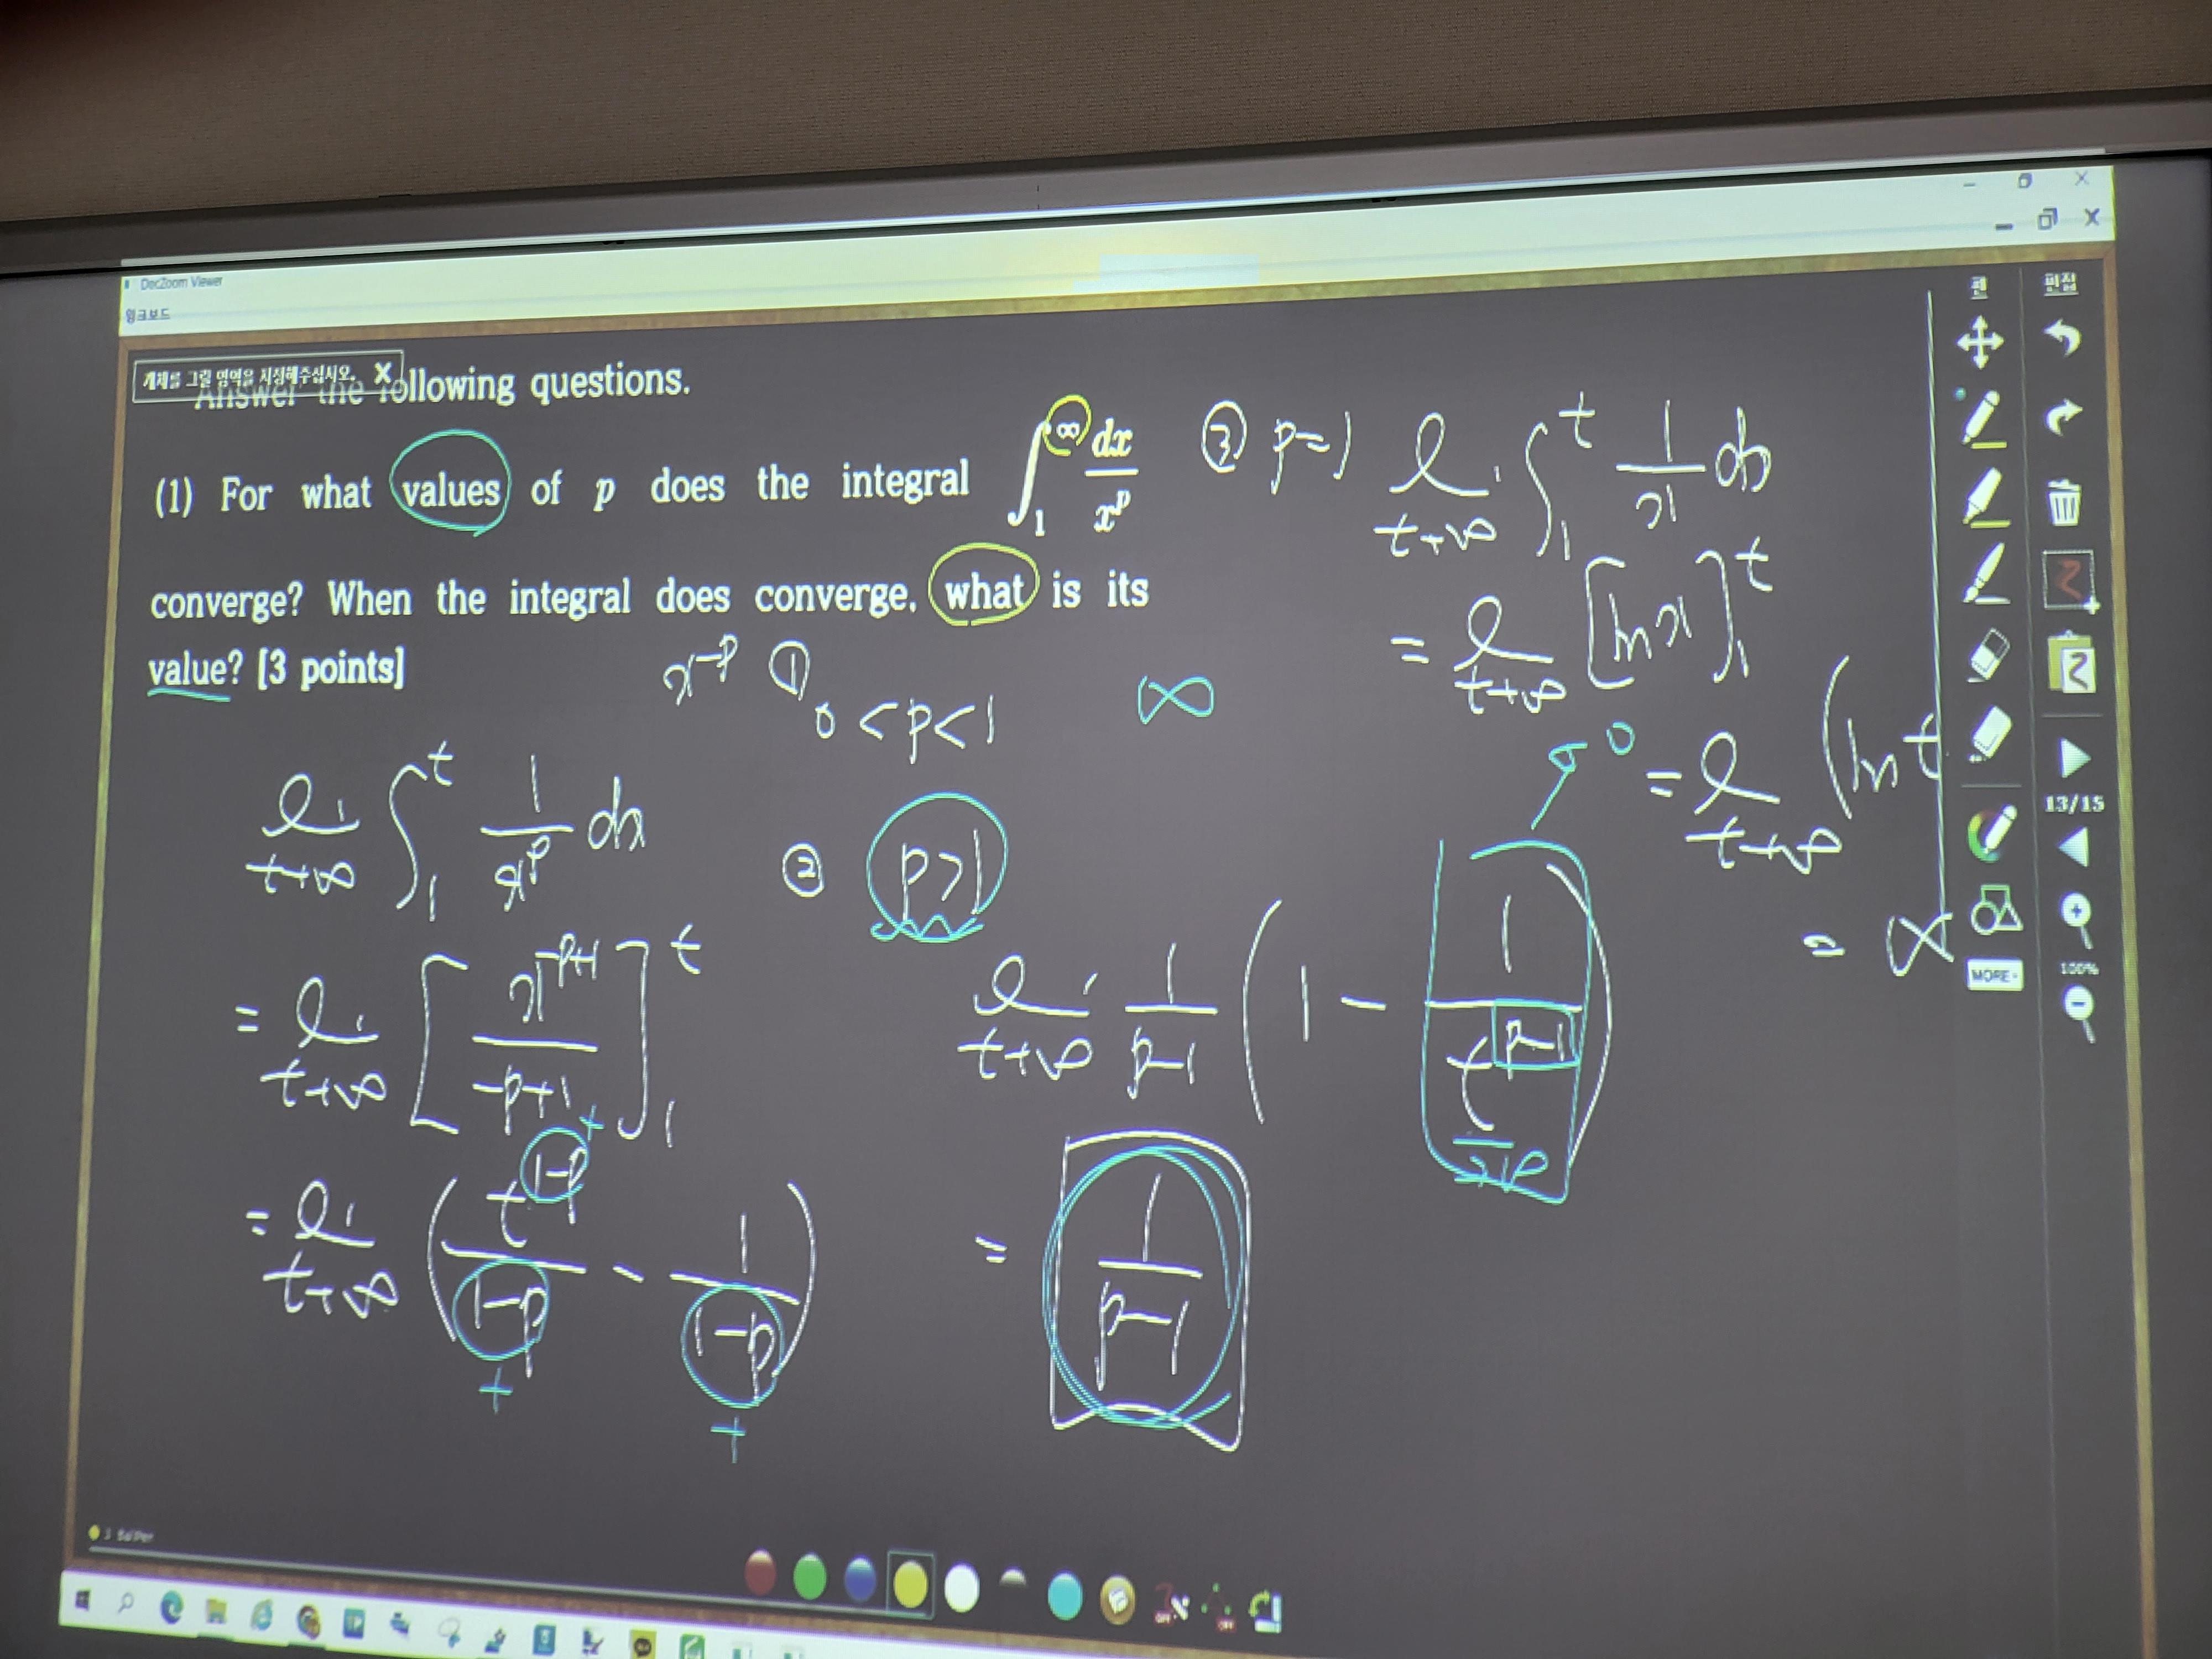 DocZoom Viewer
윙크보드
개체를 그릴 영역을 지정해주십시오. X
Answer the following questions.
(1) For what values of p does the integral ∫₁^∞ dx/x^p
converge? When the integral does converge, what is its
value? [3 points]
x^-p ① 0 < p < 1 ∞
li t→∞ ∫₁^t 1/x^p dx
= li t→∞ [x^(-p+1)/(-p+1)]₁^t
= li t→∞ (t^(1-p)/(1-p) - 1/(1-p))
+
+ +
② p>1
li t→∞ 1/(p-1) (1 - 1/t^(p-1))
→ 0
= 1/(p-1)
③ p=1 li t→∞ ∫₁^t 1/x dx
= li t→∞ [ln x]₁^t
= li t→∞ (ln t
= ∞
펜 편집
13/15
100%
MORE